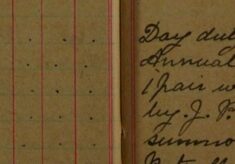 Day du
Annual
1 pair w
by J. P.
summo